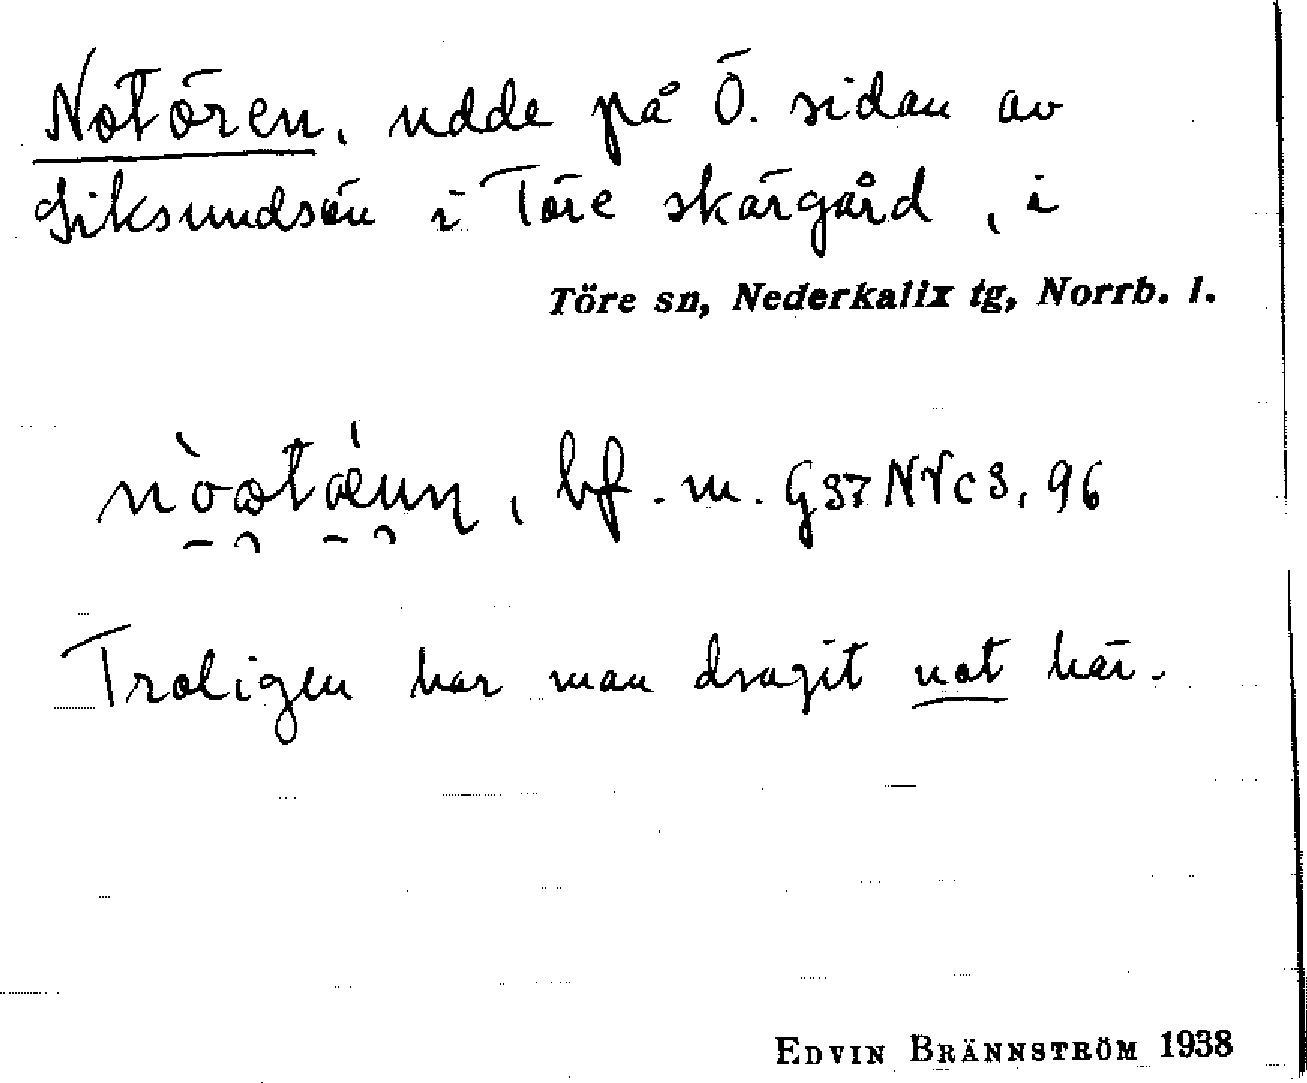 Notören, udde på Ö. sidan av
Siksundsön i Töre skärgård, i
Töre sn, Nederkalix tg, Norrb. l.
bf. m. G37 NVc3, 96
Troligen har man dragit not här.
EDVIN BRÄNNSTRÖM 1938